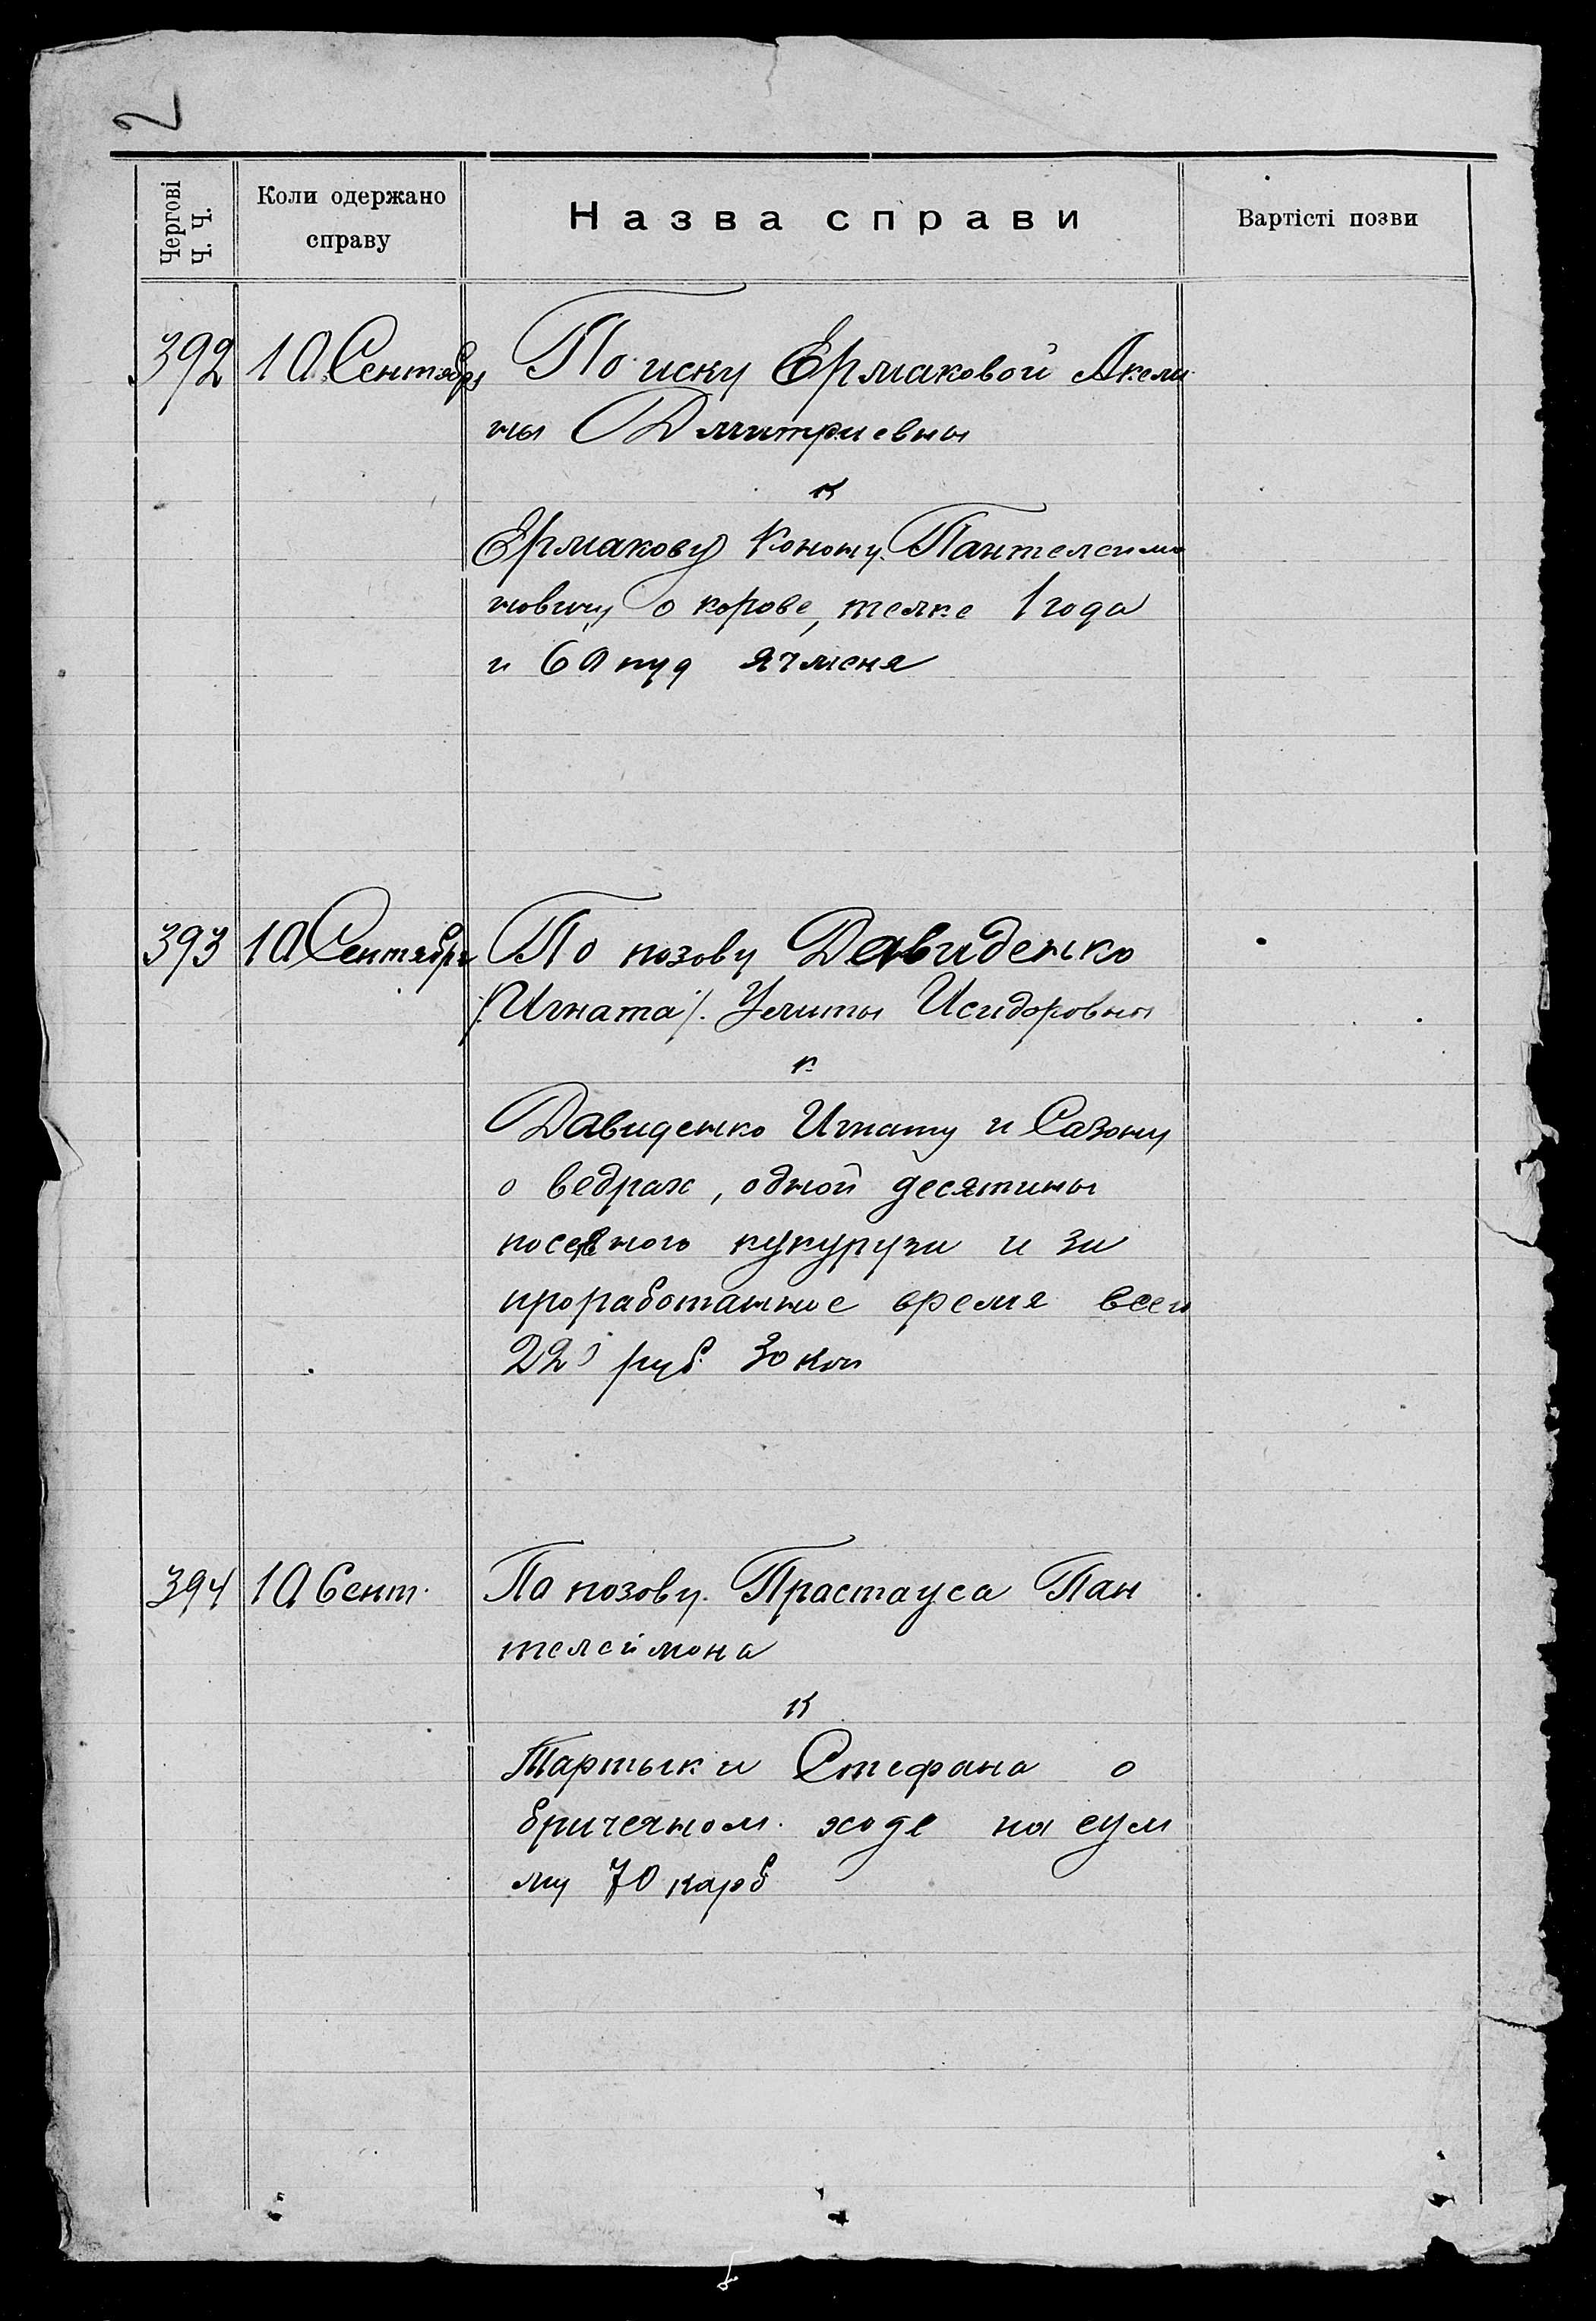 2
Чергові Ч. Ч.
Коли одержано справу
Назва справи
Вартісті позви
392 10 Сентября По иску Ермаковой Акели
ны Дмитриевны
к
Ермакову Конону Пантелеимо
новичу о корове, телке 1 года
и 60 пуд ячменя
393 10 Сентября По позову Давиденко
/Игната/. Улиты Исидоровны
к
Давиденко Игнату и Сазону
о ведрах, одной десятины
посевного кукурузи и за
проработанное время всего
220 руб. 30 коп
394 10 Сент. По позову Прастауса Пан
телеймона
к
Тартыки Стефана о
бричечном ходе на сум
му 70 карб